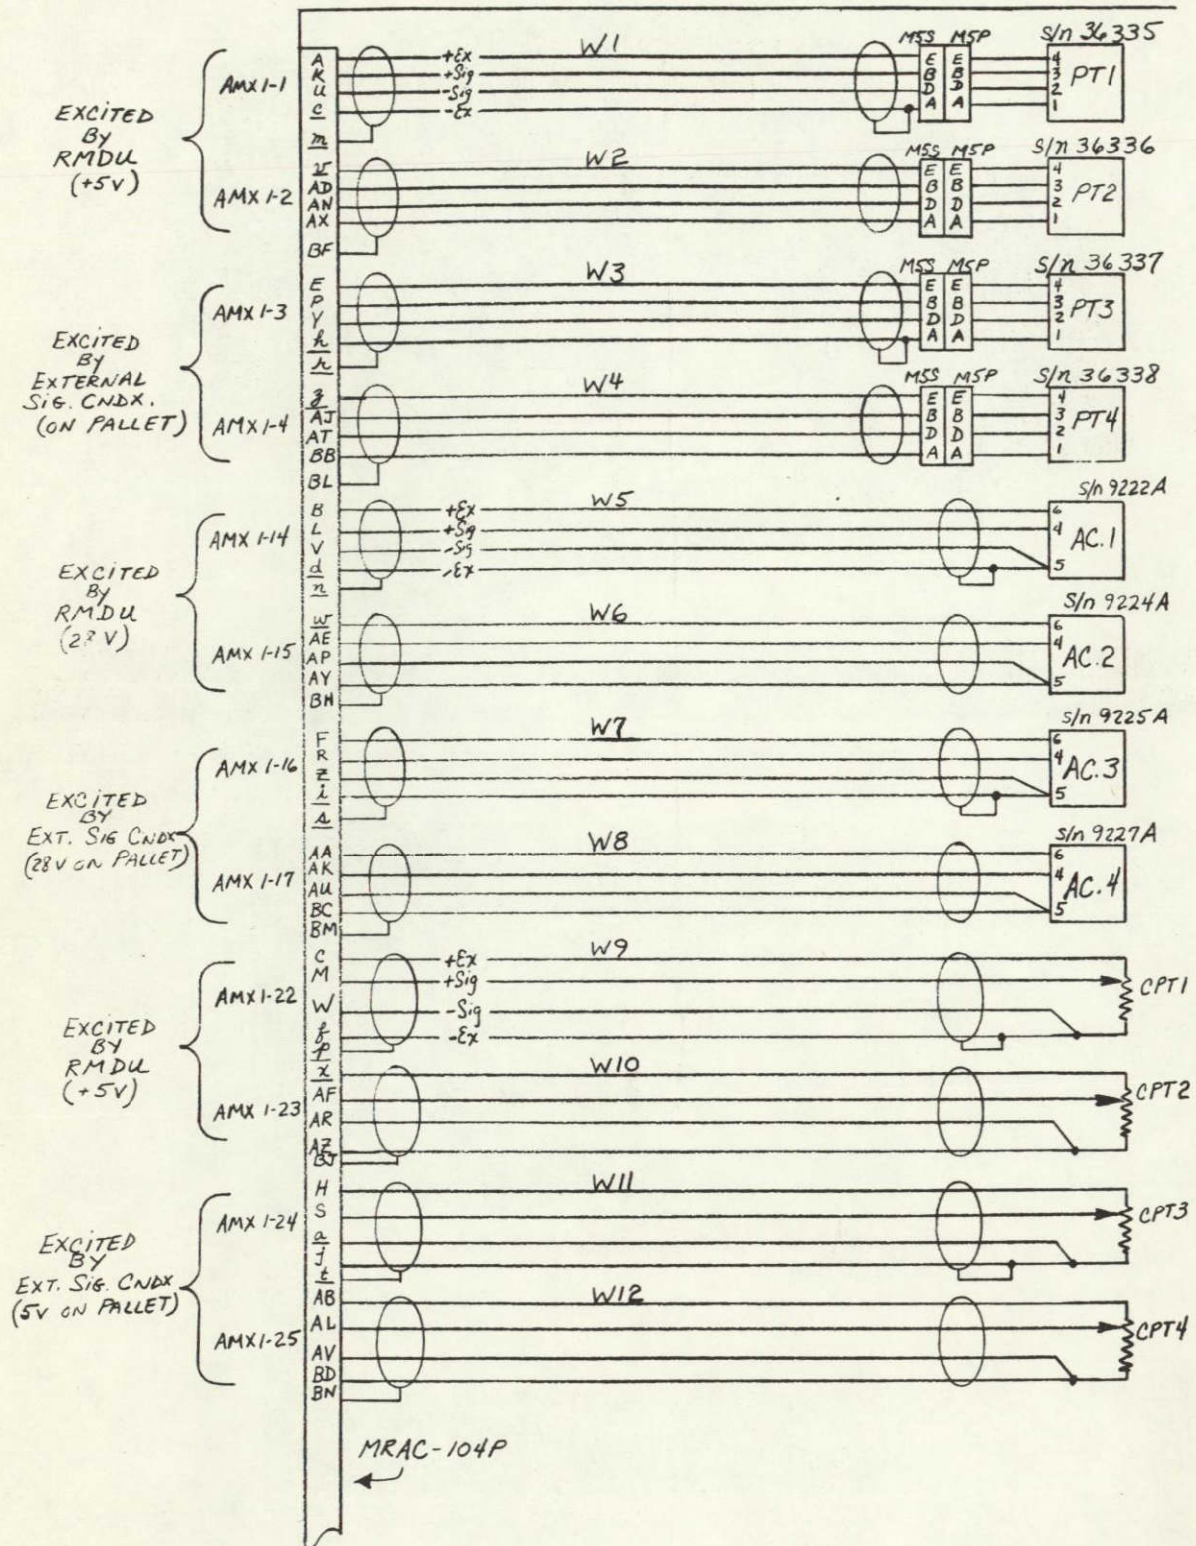 EXCITED
BY
RMDU
(+5V)
AMX 1-1
A
K
U
c
m
+Ex
+Sig
-Sig
-Ex
W1
M5S M5P
E E
B B
D D
A A
S/n 36335
4
3
2
1
PT1
AMX 1-2
v
AD
AN
AX
BF
W2
M5S M5P
E E
B B
D D
A A
S/n 36336
4
3
2
1
PT2
EXCITED
BY
EXTERNAL
SIG. CNDX.
(ON PALLET)
AMX 1-3
E
P
Y
h
r
W3
M5S M5P
E E
B B
D D
A A
S/n 36337
4
3
2
1
PT3
AMX 1-4
z
AJ
AT
BB
BL
W4
M5S M5P
E E
B B
D D
A A
S/n 36338
4
3
2
1
PT4
EXCITED
BY
RMDU
(28 V)
AMX 1-14
B
L
V
d
n
+Ex
+Sig
-Sig
-Ex
W5
S/n 9222A
6
4
5
AC.1
AMX 1-15
w
AE
AP
AY
BH
W6
S/n 9224A
6
4
5
AC.2
EXCITED
BY
EXT. SIG CNDX
(28V ON PALLET)
AMX 1-16
F
R
Z
i
s
W7
S/n 9225A
6
4
5
AC.3
AMX 1-17
AA
AK
AU
BC
BM
W8
S/n 9227A
6
4
5
AC.4
EXCITED
BY
RMDU
(+5V)
AMX 1-22
C
M
W
f
p
+Ex
+Sig
-Sig
-Ex
W9
CPT1
AMX 1-23
x
AF
AR
AZ
BJ
W10
CPT2
EXCITED
BY
EXT. SIG. CNDX
(5V ON PALLET)
AMX 1-24
H
S
a
j
t
W11
CPT3
AMX1-25
AB
AL
AV
BD
BN
W12
CPT4
MRAC-104P